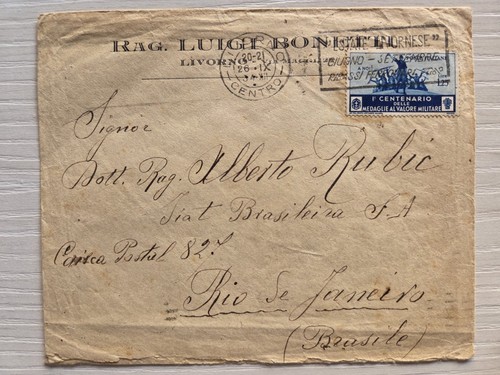 RAG. LUIGI BONETTI
LIVORNO
LIVORNO
CENTRO
LIVORNESE"
GIUGNO - SETTEMBRE
1,25
1º CENTENARIO
DELLE
MEDAGLIE AL VALORE MILITARE
Signor
Dott. Rag. Alberto Rubic
Fiat Brasileira S.A
Caixa Postal 827.
Rio de Janeiro
(Brasile)